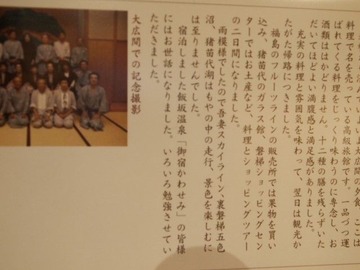 料理で名を売っている高級旅館です。一品づつ運
ばれて料理をじっくり味わうのに専念し、お
酒類はほとんどせん。十二種の膳を残らずいた
だいてほどよい満腹感と満足感がありました。
充実の料理と雰囲気を味わって、翌日は観光か
たがた帰路につきました。
福島のフルーツラインの販売所では果物を買い
込み、猪苗代のガラス館、磐梯ショッピングセン
ターではお土産など、料理とショッピングツアー
の二日間になりました。
雨模様でしたので吾妻スカイライン、裏磐梯五色
沼、猪苗代湖はもやの中の走行、景色を楽しむに
は至りませんでした。
宿泊しました飯坂温泉「御宿かわせみ」の皆様
にはお世話になりました。いろいろ勉強させてい
ただきました。
大広間での記念撮影